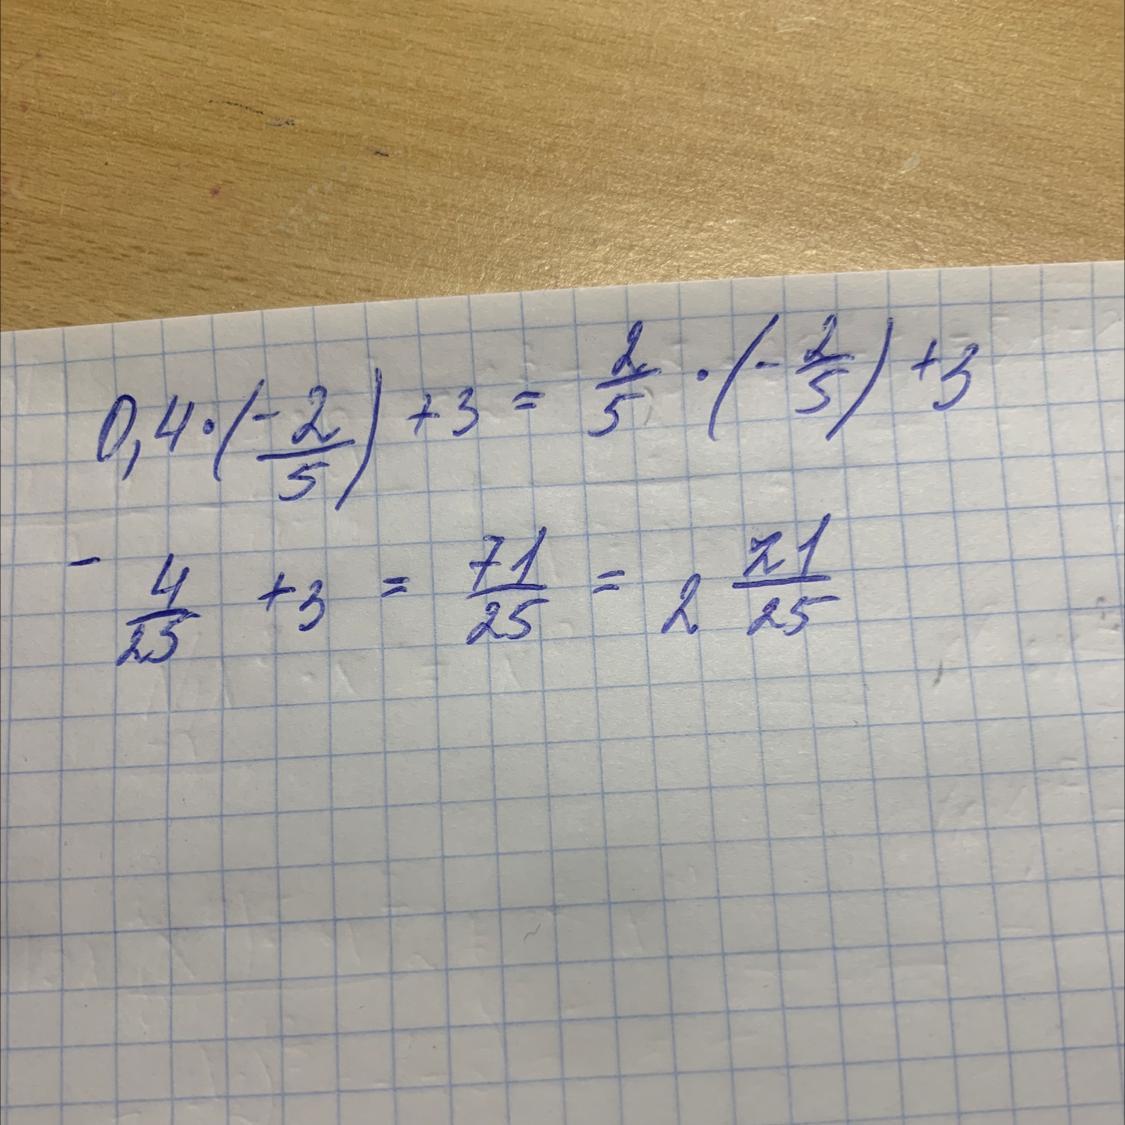 0,4·(-2/5)+3 = 2/5·(-2/5)+3
- 4/25 +3 = 71/25 = 2 21/25